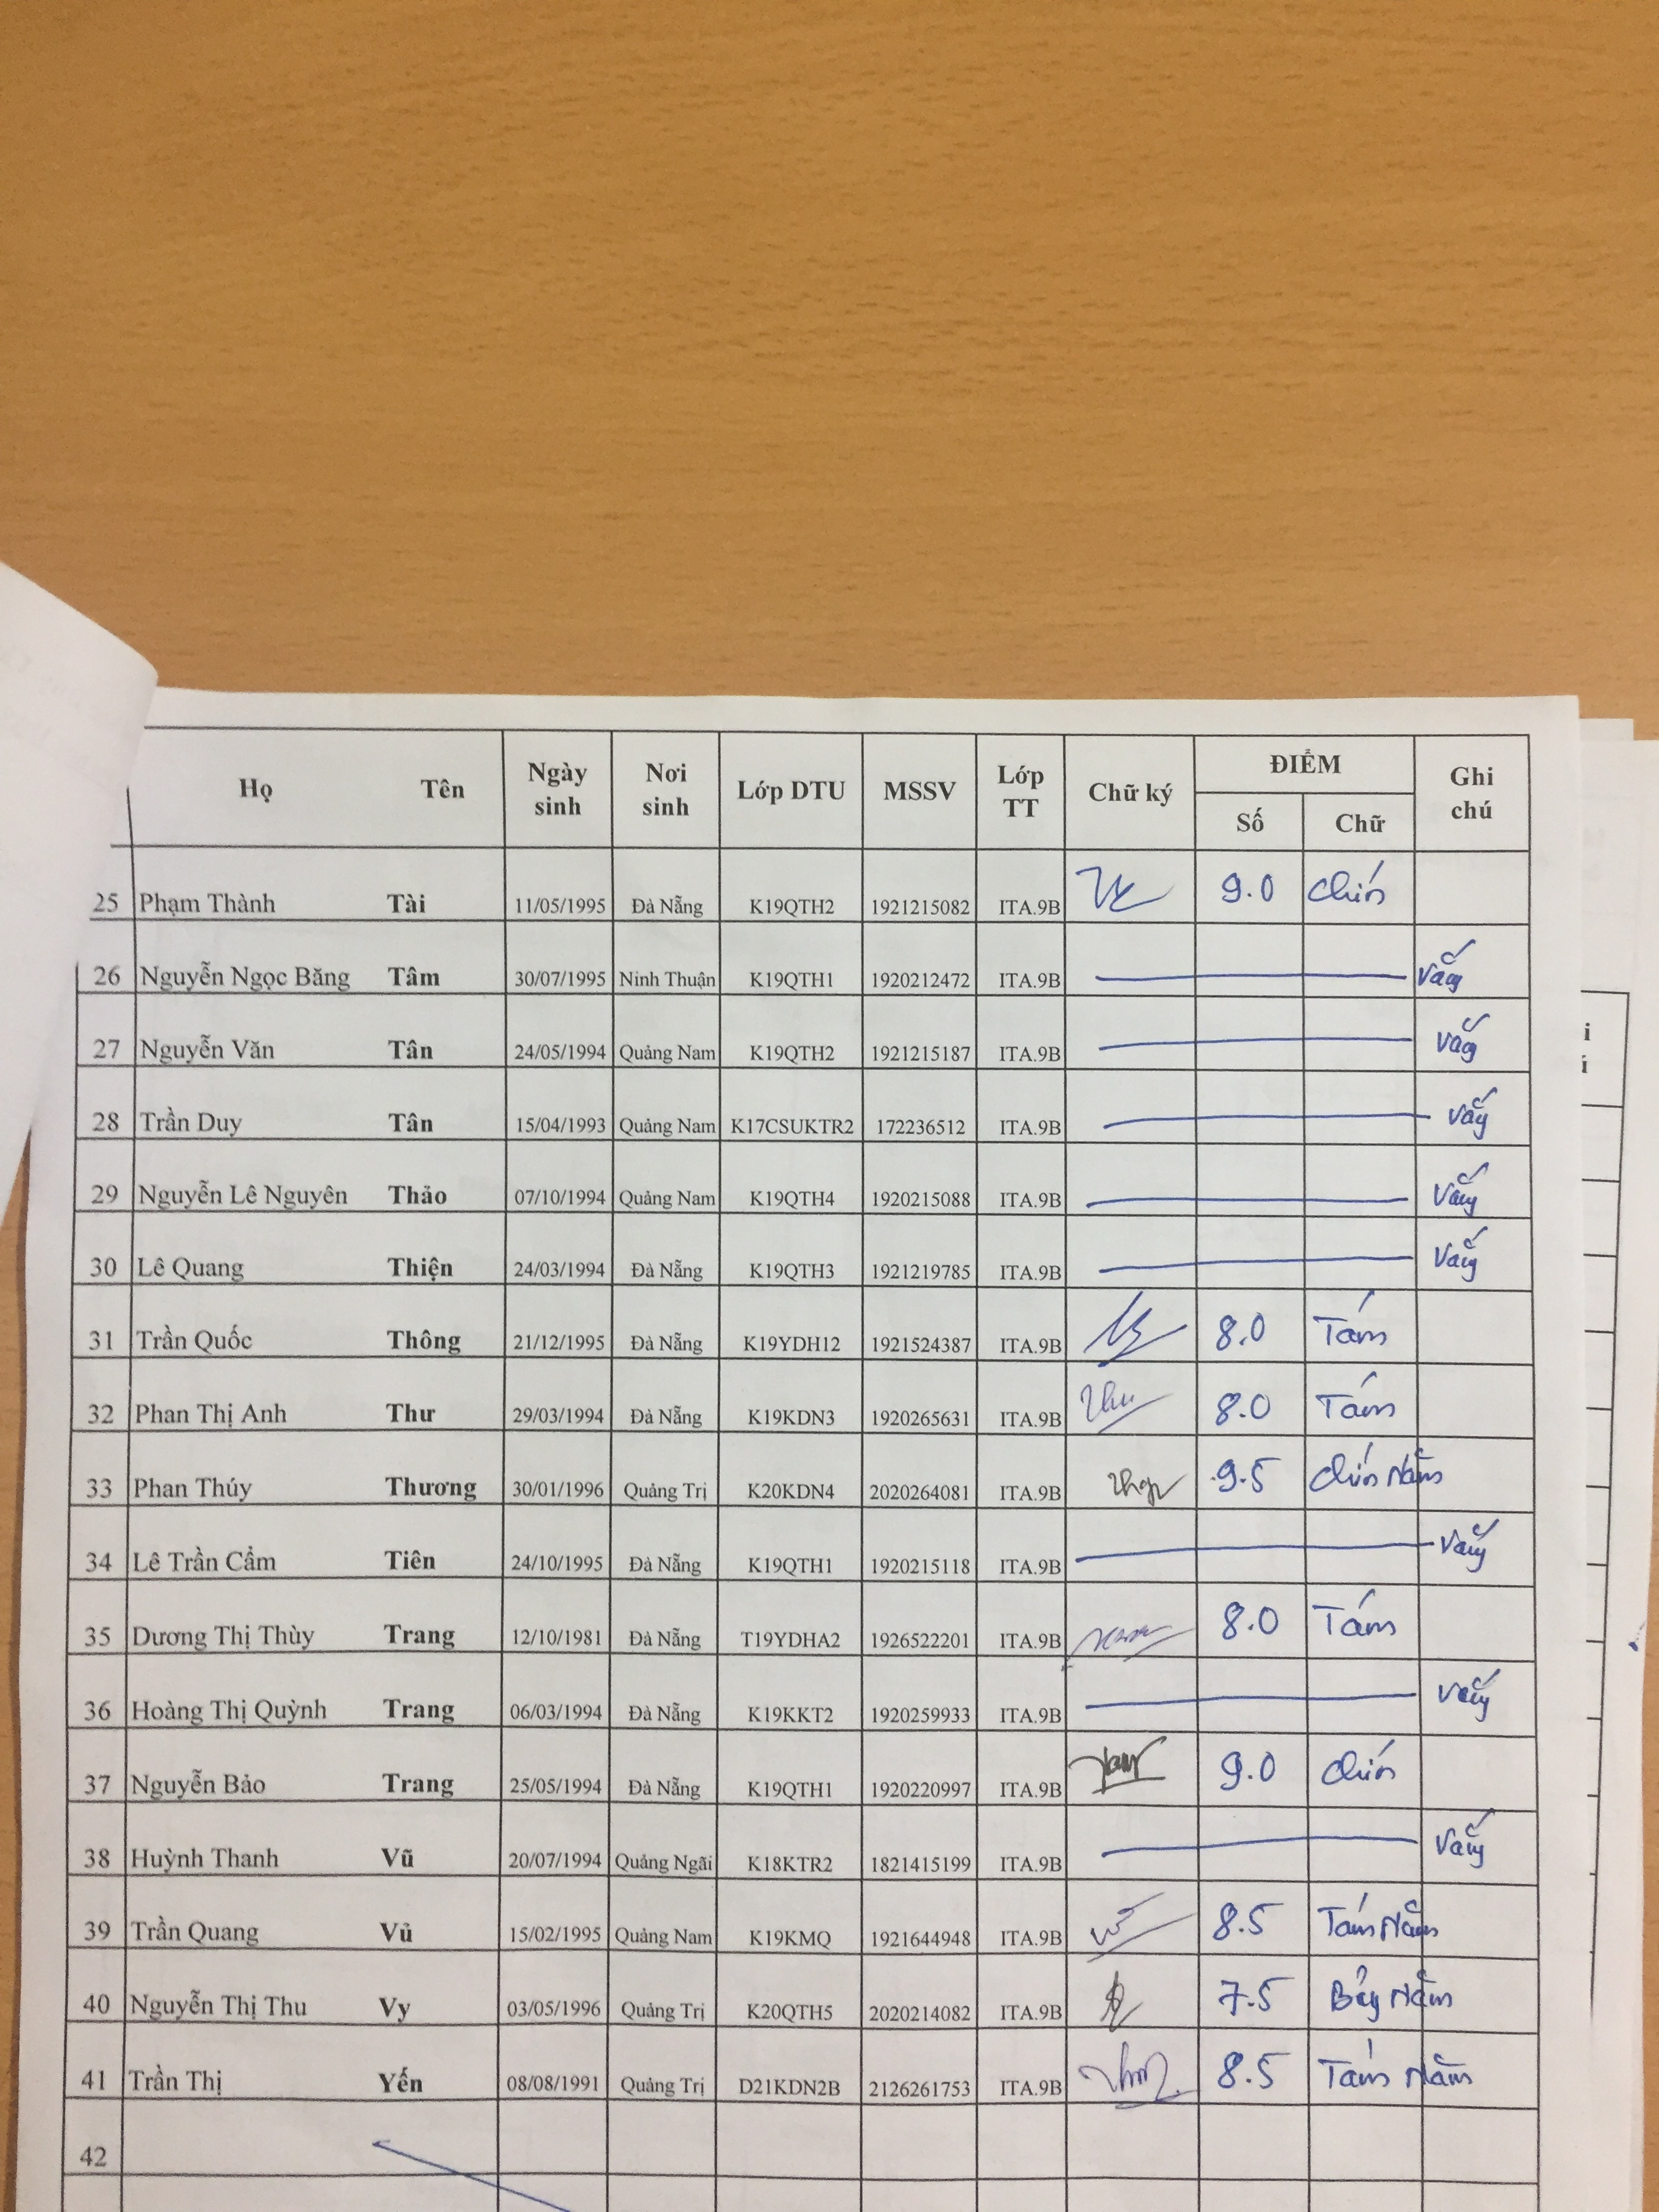 Họ Tên Ngày sinh Nơi sinh Lớp DTU MSSV Lớp TT Chữ ký ĐIỂM Số Chữ Ghi chú
25 Phạm Thành Tài 11/05/1995 Đà Nẵng K19QTH2 1921215082 ITA.9B 9.0 Chín
26 Nguyễn Ngọc Băng Tâm 30/07/1995 Ninh Thuận K19QTH1 1920212472 ITA.9B Vắng
27 Nguyễn Văn Tân 24/05/1994 Quảng Nam K19QTH2 1921215187 ITA.9B Vắng
28 Trần Duy Tân 15/04/1993 Quảng Nam K17CSUKTR2 172236512 ITA.9B Vắng
29 Nguyễn Lê Nguyên Thảo 07/10/1994 Quảng Nam K19QTH4 1920215088 ITA.9B Vắng
30 Lê Quang Thiện 24/03/1994 Đà Nẵng K19QTH3 1921219785 ITA.9B Vắng
31 Trần Quốc Thông 21/12/1995 Đà Nẵng K19YDH12 1921524387 ITA.9B 8.0 Tám
32 Phan Thị Anh Thư 29/03/1994 Đà Nẵng K19KDN3 1920265631 ITA.9B Thu 8.0 Tám
33 Phan Thúy Thương 30/01/1996 Quảng Trị K20KDN4 2020264081 ITA.9B 9.5 Chín Năm
34 Lê Trần Cẩm Tiên 24/10/1995 Đà Nẵng K19QTH1 1920215118 ITA.9B Vắng
35 Dương Thị Thùy Trang 12/10/1981 Đà Nẵng T19YDHA2 1926522201 ITA.9B 8.0 Tám
36 Hoàng Thị Quỳnh Trang 06/03/1994 Đà Nẵng K19KKT2 1920259933 ITA.9B Vắng
37 Nguyễn Bảo Trang 25/05/1994 Đà Nẵng K19QTH1 1920220997 ITA.9B 9.0 Chín
38 Huỳnh Thanh Vũ 20/07/1994 Quảng Ngãi K18KTR2 1821415199 ITA.9B Vắng
39 Trần Quang Vủ 15/02/1995 Quảng Nam K19KMQ 1921644948 ITA.9B 8.5 Tám Năm
40 Nguyễn Thị Thu Vy 03/05/1996 Quảng Trị K20QTH5 2020214082 ITA.9B 7.5 Bảy Năm
41 Trần Thị Yến 08/08/1991 Quảng Trị D21KDN2B 2126261753 ITA.9B 8.5 Tám Năm
42